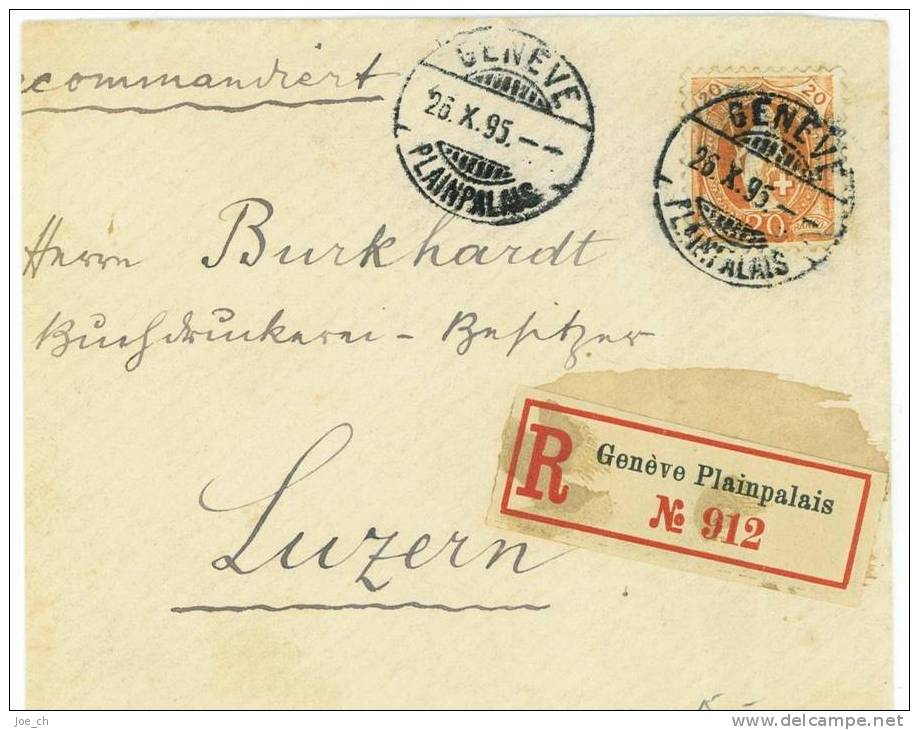 ecommandiert
GENÈVE
26.X.95.–1
PLAINPALAIS
20 20
GENÈVE
26.X.95.–
PLAINPALAIS
20
Herrn Burkhardt
Buchdruckerei-Besitzer
Luzern
R Genève Plainpalais
№ 912
joe_ch
www.delcampe.net